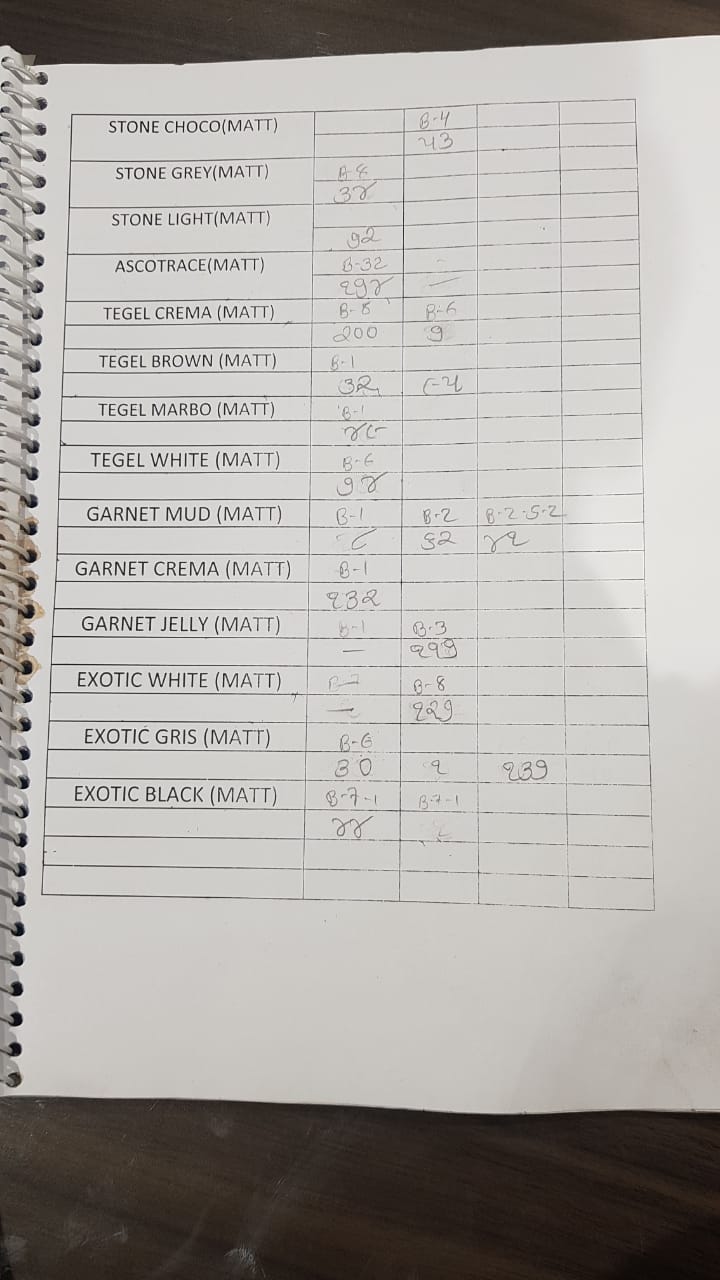 STONE CHOCO(MATT) B-4
43
STONE GREY(MATT) B-8
STONE LIGHT(MATT)
92
ASCOTRACE(MATT) B-32 -
—
TEGEL CREMA (MATT) B-8 B-6
200 9
TEGEL BROWN (MATT) B-1
32
TEGEL MARBO (MATT) B-1
TEGEL WHITE (MATT) B-6
GARNET MUD (MATT) B-1 B-2 B-2-5-2
52
GARNET CREMA (MATT) B-1
232
GARNET JELLY (MATT) B-1 B-3
— 299
EXOTIC WHITE (MATT) B-7 B-8
— 229
EXOTIC GRIS (MATT) B-6
30 2 239
EXOTIC BLACK (MATT) B-7-1 B-7-1